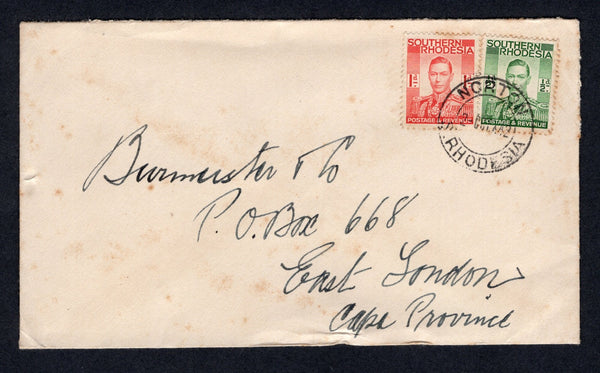 SOUTHERN
RHODESIA
1D 1D
POSTAGE & REVENUE
SOUTHERN
RHODESIA
½D
POSTAGE & REVENUE
NORTON
S. RHODESIA
Burmeister & Co
P.O. Box 668
East London
Cape Province